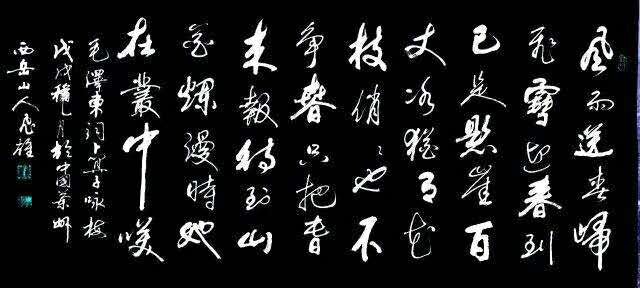 風雨送春歸
飛雪迎春到
已是懸崖百
丈冰猶有花
枝俏ミ也不
爭春只把春
来報待到山
花爛漫時她
在叢中咲
毛澤東詞卜算子咏梅
戊戌穐月於中國
西岳山人